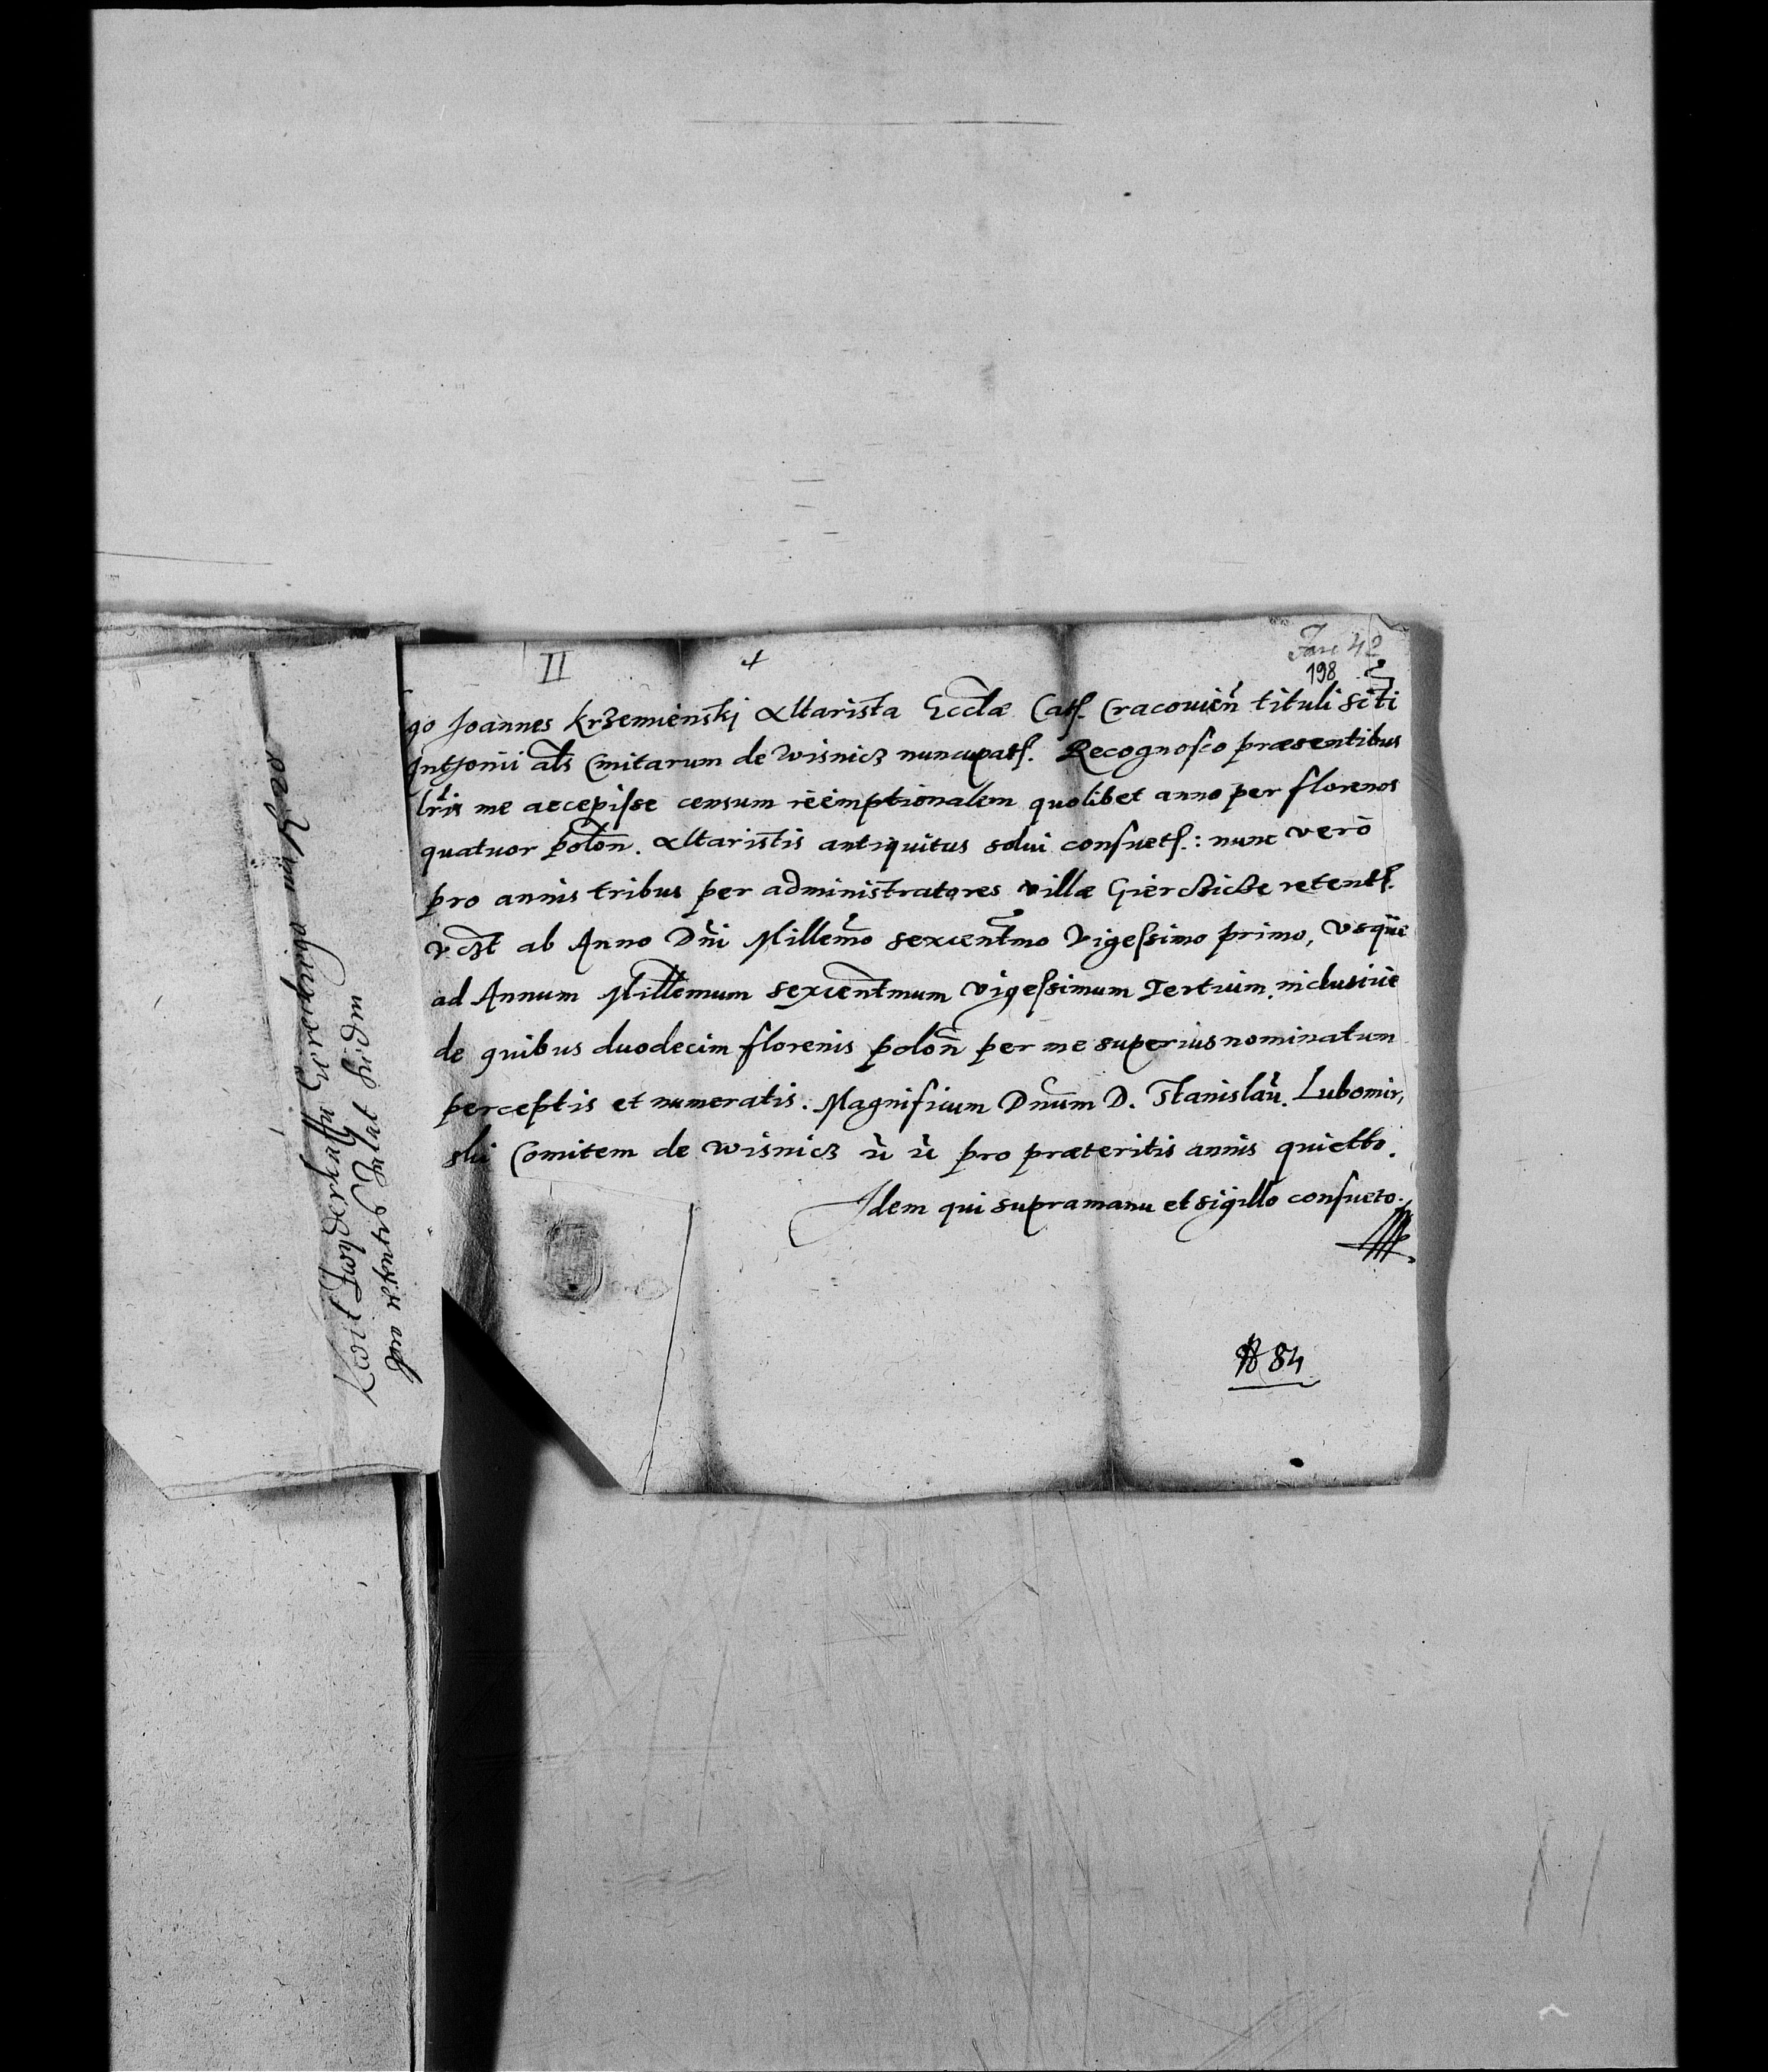 II
+
Fasc 42
198
go Joannes Krzemienskj Altarista Eccłæ Cath. Cracouień tituli Scti
Anthonii als Cmitarum de Wisnicz nuncupat. Recognosco præsentibus
lris me accepisse censum reemptionalem quolibet anno per florenos
quatuor polon. Altaristis antiquitus solui consuet: nunc vero
pro annis tribus per administratores villæ Gierczicze retent.
vczt ab Anno Dni Millemo sexcentmo Vigessimo primo, vsque
ad Annum Millemum sexcentmum vigessimum Tertium inclusiue
de quibus duodecim florenis polon per me superius nominatum
perceptis et numeratis. Magnificum Dnum D. Stanislau. Lubomir,
ski Comitem de Wisnicz ù ù pro præteritis annis quietto.
Idem qui supra manu et sigillo consueto.
№ 84
Kwit